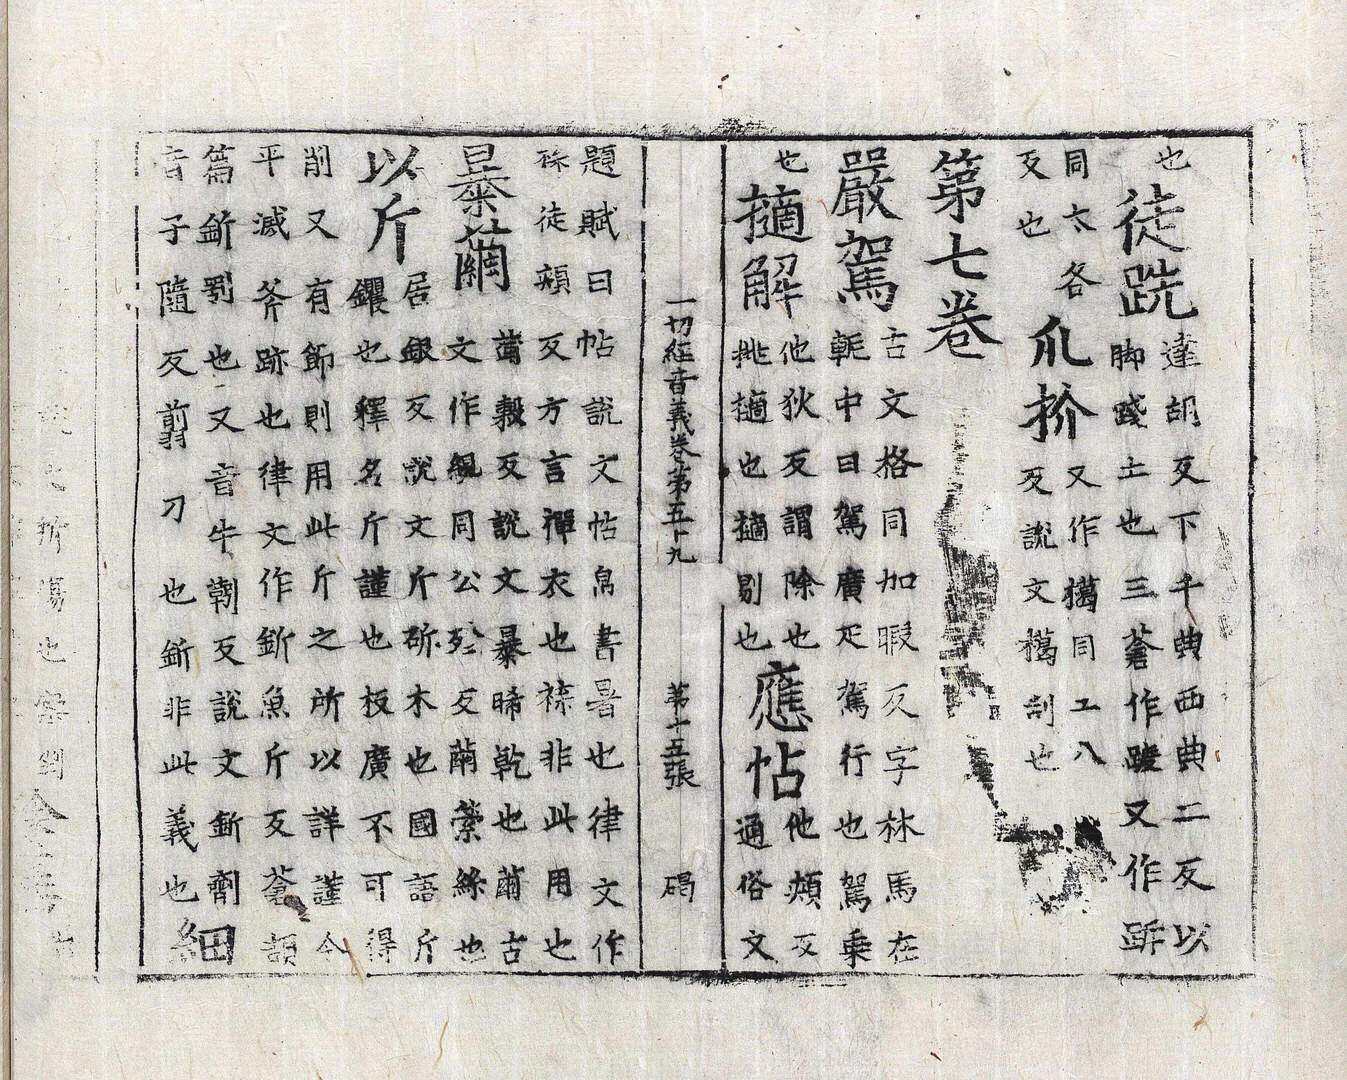 也
徒跣
達胡反下千典西典二反以
脚踐土也三蒼作踐又作
同太各
反也
爪扴
又作㩎同工八
反說文㩎刮也
第七卷
嚴駕
古文格同加暇反字林馬在
軛中曰駕廣疋駕行也駕乗
也
擿解
他狄反謂除也
挑擿也擿剔也
應帖
他頰反
通俗文
一切經音義卷第五十九 第十五張 碣
題賦曰帖說文帖帛書署也律文作
褋徒頰反方言襌衣也褋非此用也
暴繭
蒲穀反說文暴晞乾也繭古
文作絸同公殄反繭縈絲也
以斤
居銀反說文斤斫木也國語斤
钁也釋名斤謹也板廣不可得
削又有節則用此斤之所以詳謹令
平滅斧跡也律文作釿魚斤反蒼頡
篇釿劓也又音牛靳反說文釿劑
音子隨反翦刀也釿非此義也
細